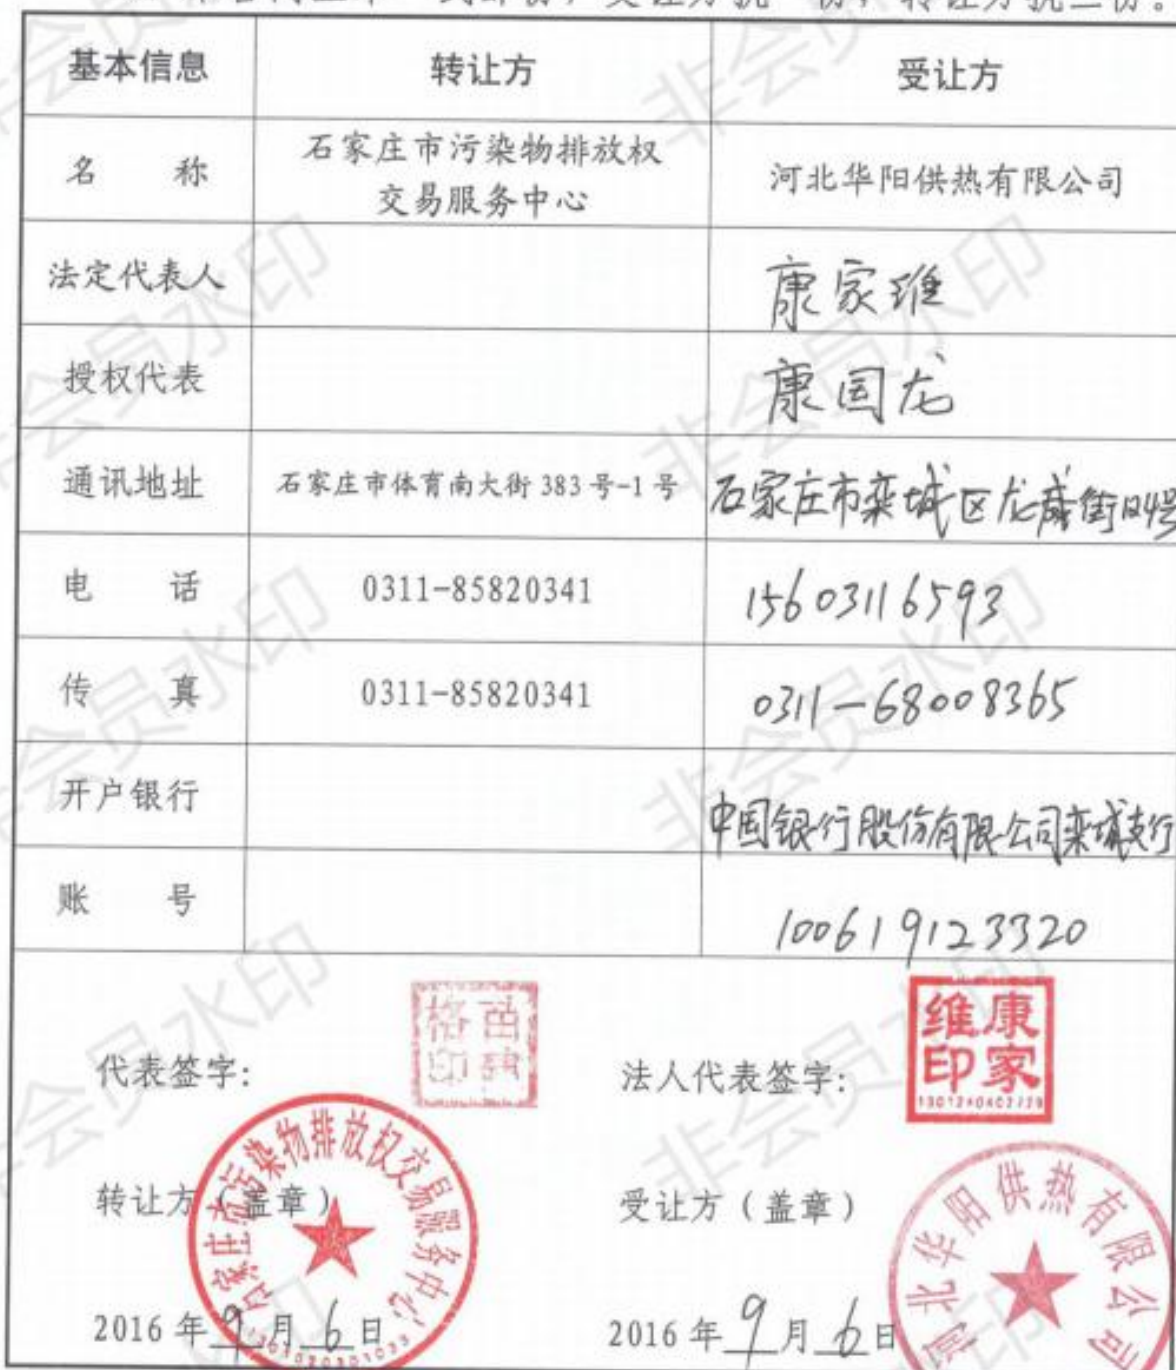 基本信息 转让方 受让方
名 称 石家庄市污染物排放权交易服务中心 河北华阳供热有限公司
法定代表人 康家维
授权代表 康国龙
通讯地址 石家庄市体育南大街 383 号-1 号 石家庄市栾城区龙 街 号
电 话 0311-85820341 15603116593
传 真 0311-85820341 0311-68008365
开户银行 中国银行股份有限公司栾城支行
账 号 100619123320
代表签字: 法人代表签字:
康家维印
转让方（盖章） 受让方（盖章）
石家庄市污染物排放权交易服务中心 河北华阳供热有限公司
2016 年 9 月 6 日 2016 年 9 月 6 日
非会员水印